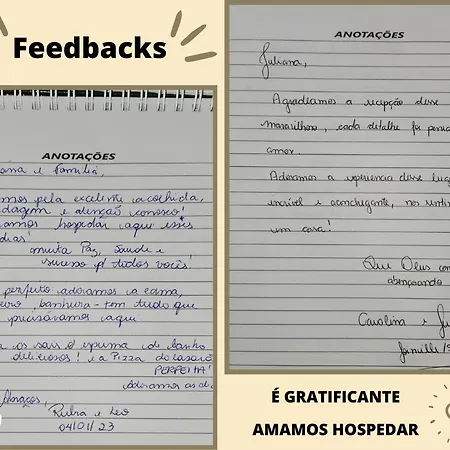 Feedbacks
ANOTAÇÕES
ana e Família,
mos pela excelente acolhida,
dagem e atenção conosco!
amos hospedar aqui esses
dias!
muita Paz, Saúde e
sucesso p/ todos vocês!
perfeito adoramos a cama,
banheira - tem tudo que
precisávamos aqui
os sais e espuma de banho
deliciosos! e a Pizza do casarã
PERFEITA!
Adoramos as di
Abraços,
Rubia e Leo
04/01/23
ANOTAÇÕES
Juliana,
Agradeamos a recepção desse
maravilhoso, cada detalhe foi pensa
amor.
Adoramos a experiencia desse lug
incrível e aconchegante, nos senti
em casa!
Que Deus con
abençoando
Carolina e Ju
É GRATIFICANTE
AMAMOS HOSPEDAR